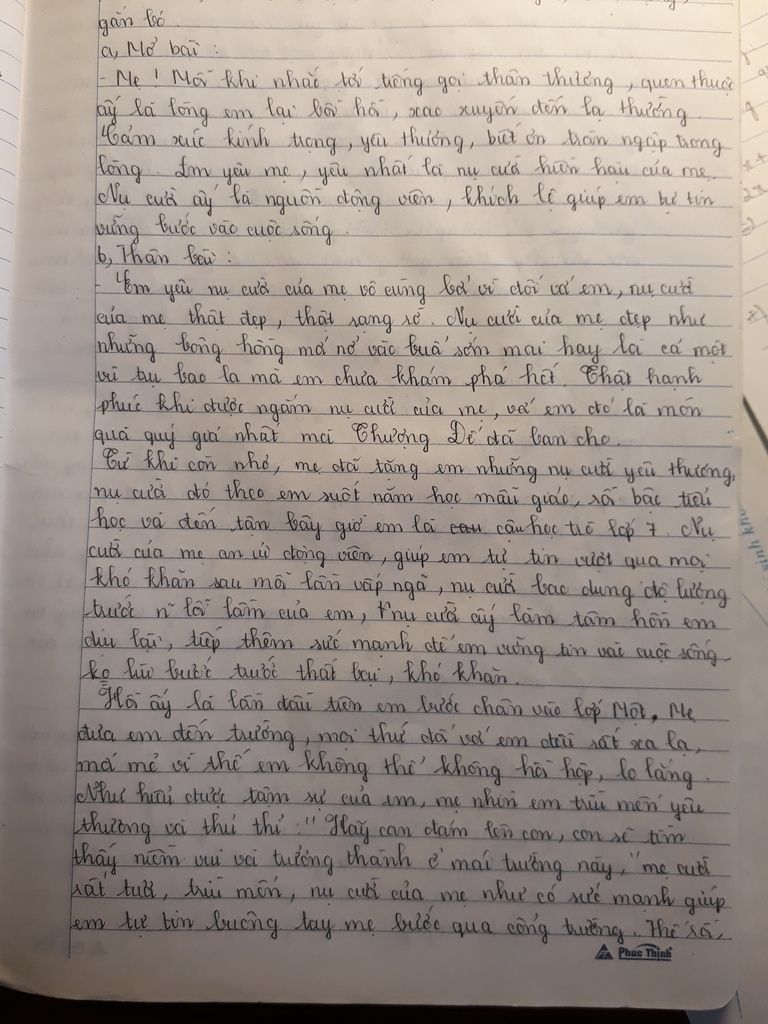 gắn bó.
a, Mở bài :
- Mẹ ! Mỗi khi nhắc tới tiếng gọi thân thương, quen thuộc
ấy là lòng em lại bồi hồi, xao xuyến đến lạ thường.
Cảm xúc kính trọng, yêu thương, biết ơn tràn ngập trong
lòng. Em yêu mẹ, yêu nhất là nụ cười hiền hậu của mẹ.
Nụ cười ấy là nguồn động viên, khích lệ giúp em tự tin
vững bước vào cuộc sống.
b, Thân bài :
- Em yêu nụ cười của mẹ vô cùng bởi vì đối với em, nụ cười
của mẹ thật đẹp, thật rạng rỡ. Nụ cười của mẹ đẹp như
những bông hồng mới nở vào buổi sớm mai hay là cả một
vũ trụ bao la mà em chưa khám phá hết. Thật hạnh
phúc khi được ngắm nụ cười của mẹ, với em đó là món
quà quý giá nhất mà Thượng Đế đã ban cho.
Từ khi còn nhỏ, mẹ đã tặng em những nụ cười yêu thương,
nụ cười đó theo em suốt năm học mẫu giáo, rồi bậc tiểu
học và đến tận bây giờ em là cậu học trò lớp 7. Nụ
cười của mẹ an ủi động viên, giúp em tự tin vượt qua mọi
khó khăn sau mỗi lần vấp ngã, nụ cười bao dung độ lượng
trước n~ lỗi lầm của em, nụ cười ấy làm tâm hồn em
dịu lại, tiếp thêm sức mạnh để em vững tin vào cuộc sống
ko lùi bước trước thất bại, khó khăn.
Hồi ấy là lần đầu tiên em bước chân vào lớp Một. Mẹ
đưa em đến trường, mọi thứ đối với em đều rất xa lạ,
mới mẻ vì thế em không thể không hồi hộp, lo lắng.
Như hiểu được tâm sự của em, mẹ nhìn em trìu mến yêu
thương và thủ thỉ : "Hãy can đảm lên con, con sẽ tìm
thấy niềm vui và trưởng thành ở mái trường này," mẹ cười
rất tươi, trìu mến, nụ cười của mẹ như có sức mạnh giúp
em tự tin buông tay mẹ bước qua cổng trường. Thế rồi,
Phuc Thinh